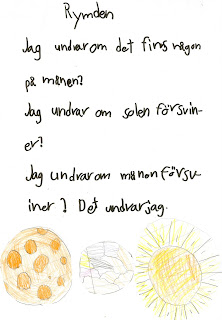 Rymden
Jag undrar om det fins någon
på månen?
Jag undrar om solen försvin
er?
Jag undrar om månen försv
iner? Det undrar jag.